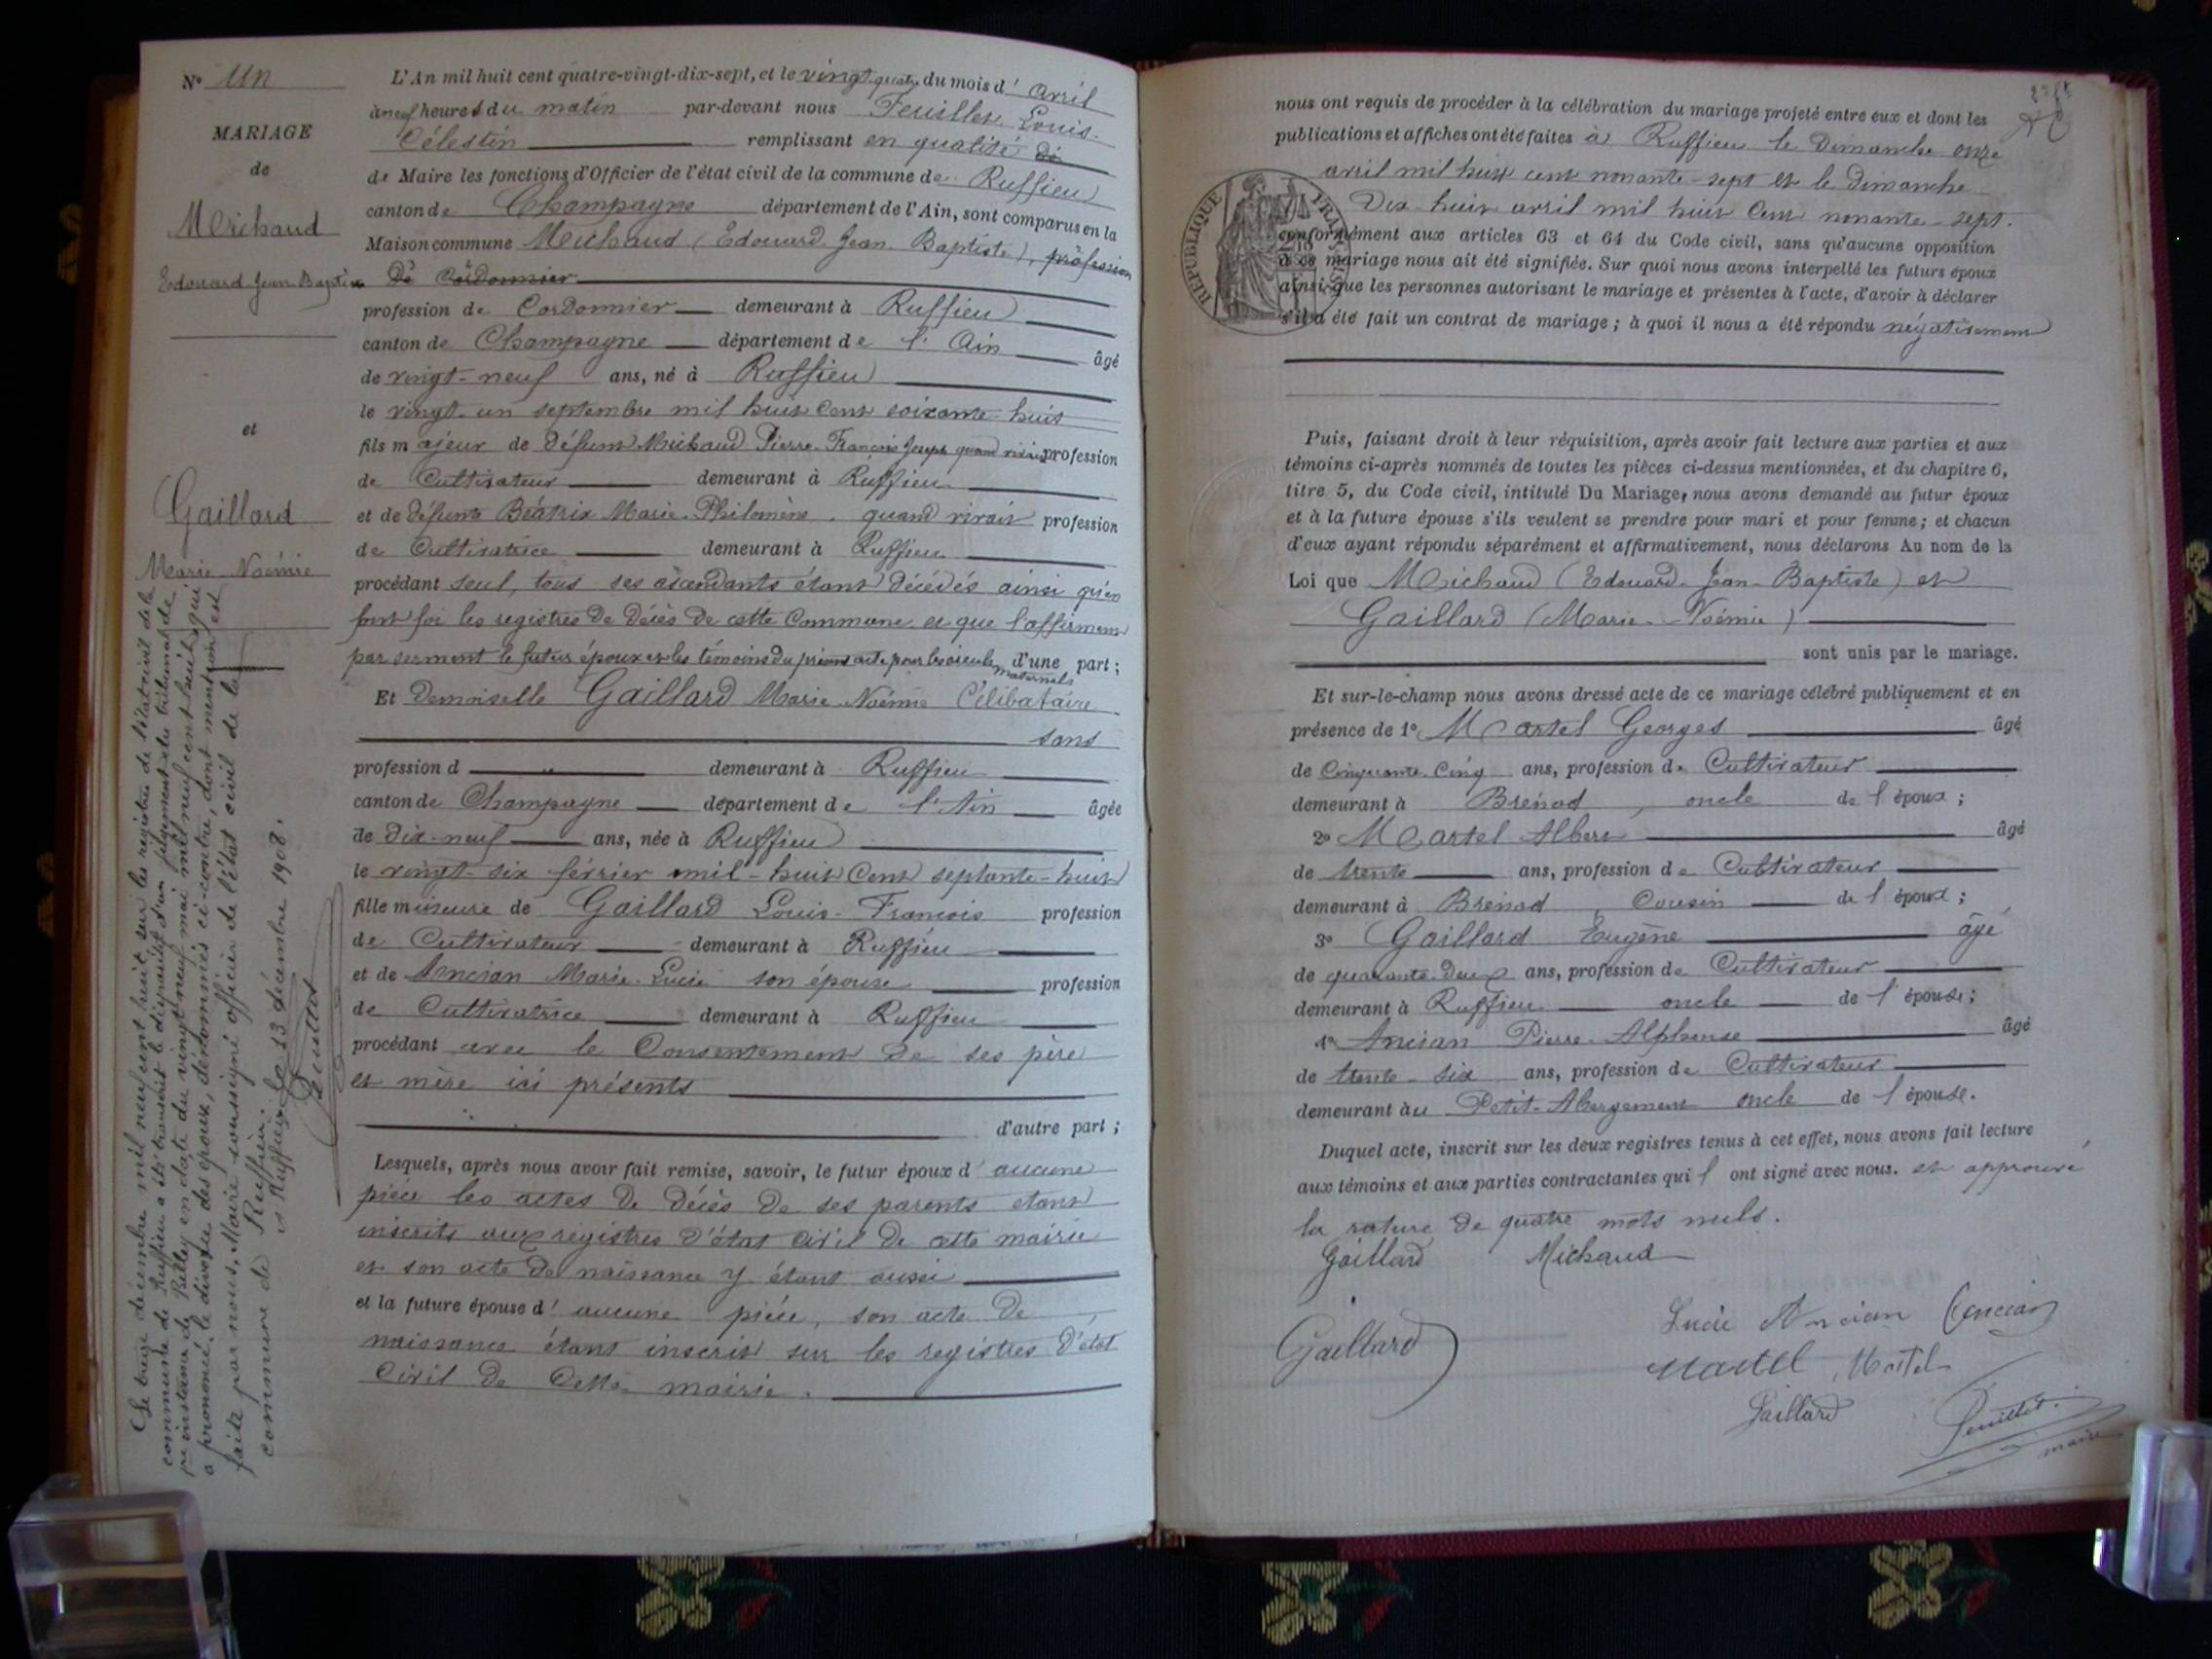 N° Un
MARIAGE
de
Michaud
Edouard Jean Baptiste
et
Gaillard
Marie Noémie
Le treize décembre mil neuf cent huit sur les registres de l'état civil de la
commune de Ruffieu a été transcrit le dispositif d'un jugement du tribunal de
1re instance de Belley en date du vingt neuf mai mil neuf cent huit qui
a prononcé le divorce des époux, dénommés ci-contre, dont mention est
faite par nous, Maire soussigné officier de l'état civil de la
commune de Ruffieu.
à Ruffieu le 13 décembre 1908.
L'An mil huit cent quatre-vingt-dix-sept, et le vingt-quatre du mois d' avril
à neuf heures du matin par-devant nous Feuillet Louis-
Célestin remplissant en qualité de
de Maire les fonctions d'Officier de l'état civil de la commune de Ruffieu
canton de Champagne département de l'Ain, sont comparus en la
Maison commune Michaud (Edouard Jean Baptiste), profession
De Cordonnier
profession de Cordonnier demeurant à Ruffieu
canton de Champagne département de l'Ain âgé
de vingt-neuf ans, né à Ruffieu
le vingt-un septembre mil huit cent soixante-huit
fils majeur de défunt Michaud Pierre-François Joseph quand vivait profession
de Cultivateur demeurant à Ruffieu
et de défunte Béatrix Marie-Philomène quand vivait profession
de Cultivatrice demeurant à Ruffieu
procédant seul, tous ses ascendants étant décédés ainsi qu'en
font foi les registres de décès de cette commune et que l'affirment
par serment le futur époux et les témoins du présent acte pour les aïeules maternels d'une part;
Et demoiselle Gaillard Marie Noémie Célibataire
sans
profession d " demeurant à Ruffieu
canton de Champagne département de l'Ain âgée
de dix-neuf ans, née à Ruffieu
le vingt-six février mil-huit cent septante-huit
fille mineure de Gaillard Louis-François profession
de Cultivateur demeurant à Ruffieu
et de Ancian Marie-Lucie son épouse profession
de Cultivatrice demeurant à Ruffieu
procédant avec le Consentement de ses père
et mère ici présents
d'autre part;
Lesquels, après nous avoir fait remise, savoir, le futur époux d'aucune
pièce les actes de décès de ses parents étant
inscrits aux registres d'état civil de cette mairie
et son acte de naissance y étant aussi
et la future épouse d'aucune pièce, son acte de
naissance étant inscrit sur les registres d'état
civil de cette mairie.
nous ont requis de procéder à la célébration du mariage projeté entre eux et dont les
publications et affiches ont été faites à Ruffieu le Dimanche onze
avril mil huit cent nonante-sept et le dimanche
Dix-huit avril mil huit cent nonante-sept.
RÉPUBLIQUE FRANÇAISE
conformément aux articles 63 et 64 du Code civil, sans qu'aucune opposition
à ce mariage nous ait été signifiée. Sur quoi nous avons interpellé les futurs époux
ainsi que les personnes autorisant le mariage et présentes à l'acte, d'avoir à déclarer
s'il a été fait un contrat de mariage; à quoi il nous a été répondu négativement
Puis, faisant droit à leur réquisition, après avoir fait lecture aux parties et aux
témoins ci-après nommés de toutes les pièces ci-dessus mentionnées, et du chapitre 6,
titre 5, du Code civil, intitulé Du Mariage, nous avons demandé au futur époux
et à la future épouse s'ils veulent se prendre pour mari et pour femme; et chacun
d'eux ayant répondu séparément et affirmativement, nous déclarons Au nom de la
Loi que Michaud (Edouard-Jean-Baptiste) et
Gaillard (Marie-Noémie)
sont unis par le mariage.
Et sur-le-champ nous avons dressé acte de ce mariage célébré publiquement et en
présence de 1° Martel Georges âgé
de Cinquante-Cinq ans, profession de Cultivateur
demeurant à Brénod, oncle de l'époux;
2° Martel Albert âgé
de trente ans, profession de Cultivateur
demeurant à Brénod, Cousin de l'époux;
3° Gaillard Eugène âgé
de quarante-deux ans, profession de Cultivateur
demeurant à Ruffieu oncle de l'épouse;
4° Ancian Pierre-Alphonse âgé
de trente-six ans, profession de Cultivateur
demeurant au Petit-Abergement oncle de l'épouse.
Duquel acte, inscrit sur les deux registres tenus à cet effet, nous avons fait lecture
aux témoins et aux parties contractantes qui l'ont signé avec nous. et approuvé
la rature de quatre mots nuls.
Gaillard Michaud
Gaillard Lucie Ancian Ancian
Martel Martel
Gaillard Feuillet
maire